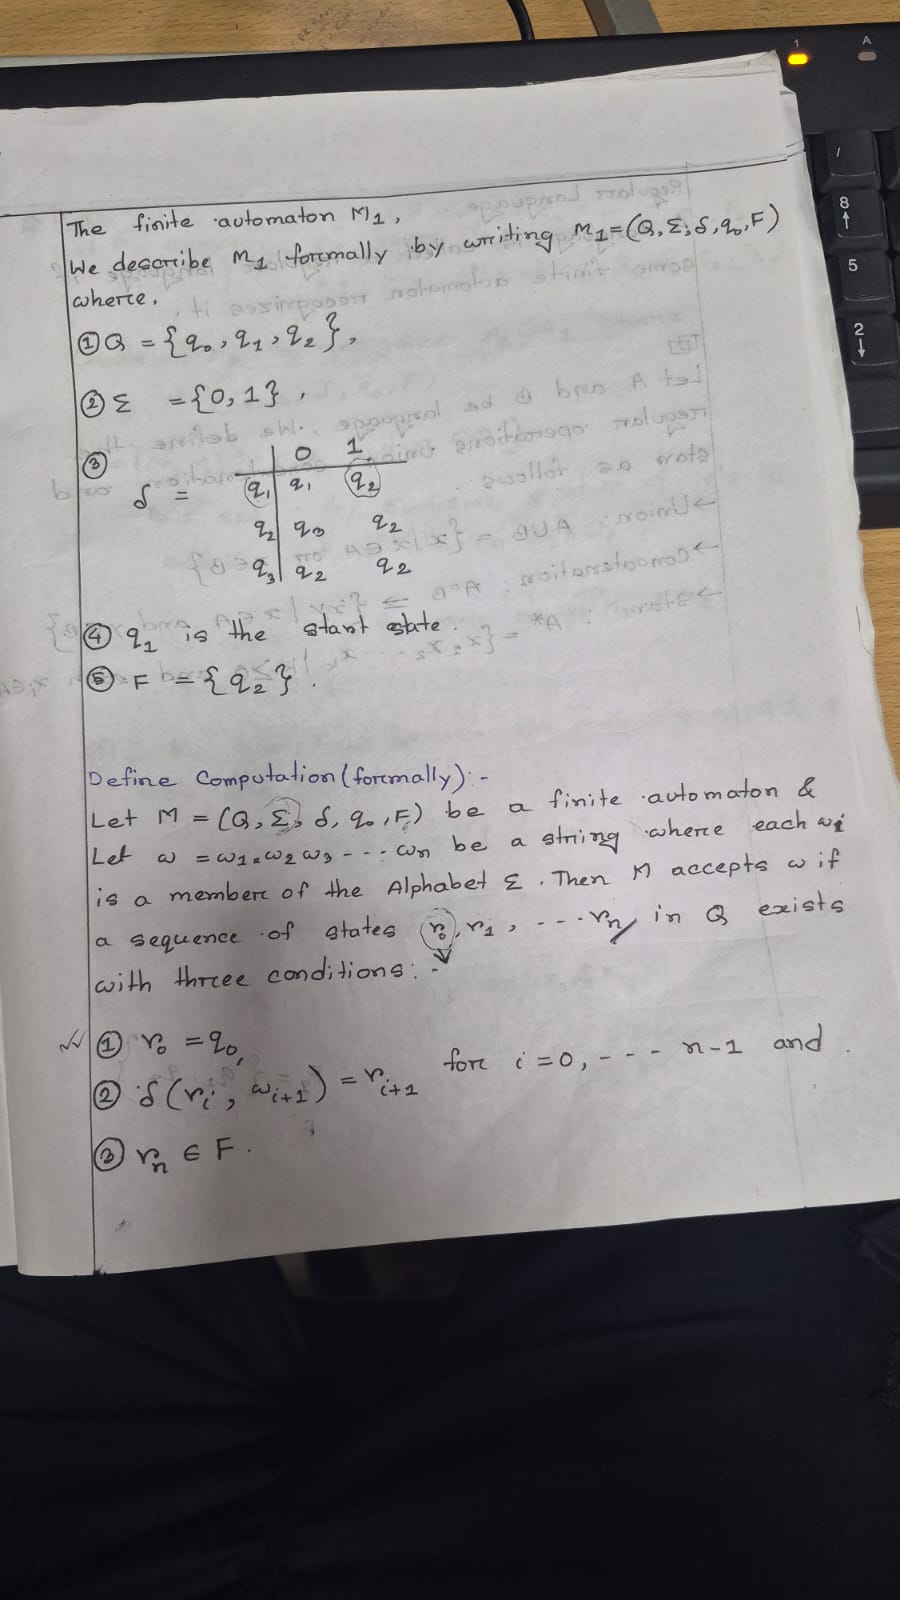 The finite automaton M1,
We describe M1 formally by writing M1=(Q,Σ,δ,q0,F)
where,
① Q = {q0, q1, q2},
② Σ = {0,1},
③
0 1
δ = q1 q1 q2
q2 q3 q2
q3 q2 q2
④ q1 is the start state.
⑤ F = {q2}.
Define Computation (formally):-
Let M = (Q, Σ, δ, q0, F) be a finite automaton &
Let w = w1 w2 w3 --- wn be a string where each wi
is a member of the Alphabet Σ. Then M accepts w if
a sequence of states r0, r1, ---- rn in Q exists
with three conditions:-
① r0 = q0,
② δ(ri, wi+1) = ri+1 for i=0, --- n-1 and.
③ rn ∈ F.
1
A
/
8
↑
5
2
↓